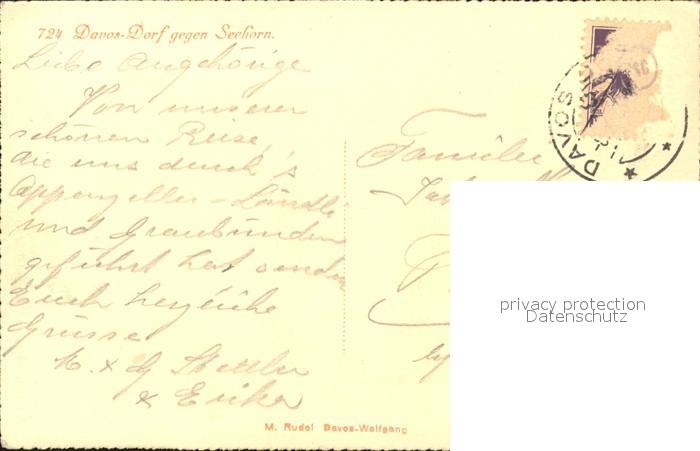 724 Davos-Dorf gegen Seehorn.
Liebe Angehörige
Von unserer
schönen Reise,
die uns durch's
Appenzeller-Ländli
und Graubünden
geführt hat senden
Euch herzliche
Grüsse
K. & G. Stettler
& Erika
M. Rudel Davos-Wolfgang
Familie
DAVOS
privacy protection
Datenschutz